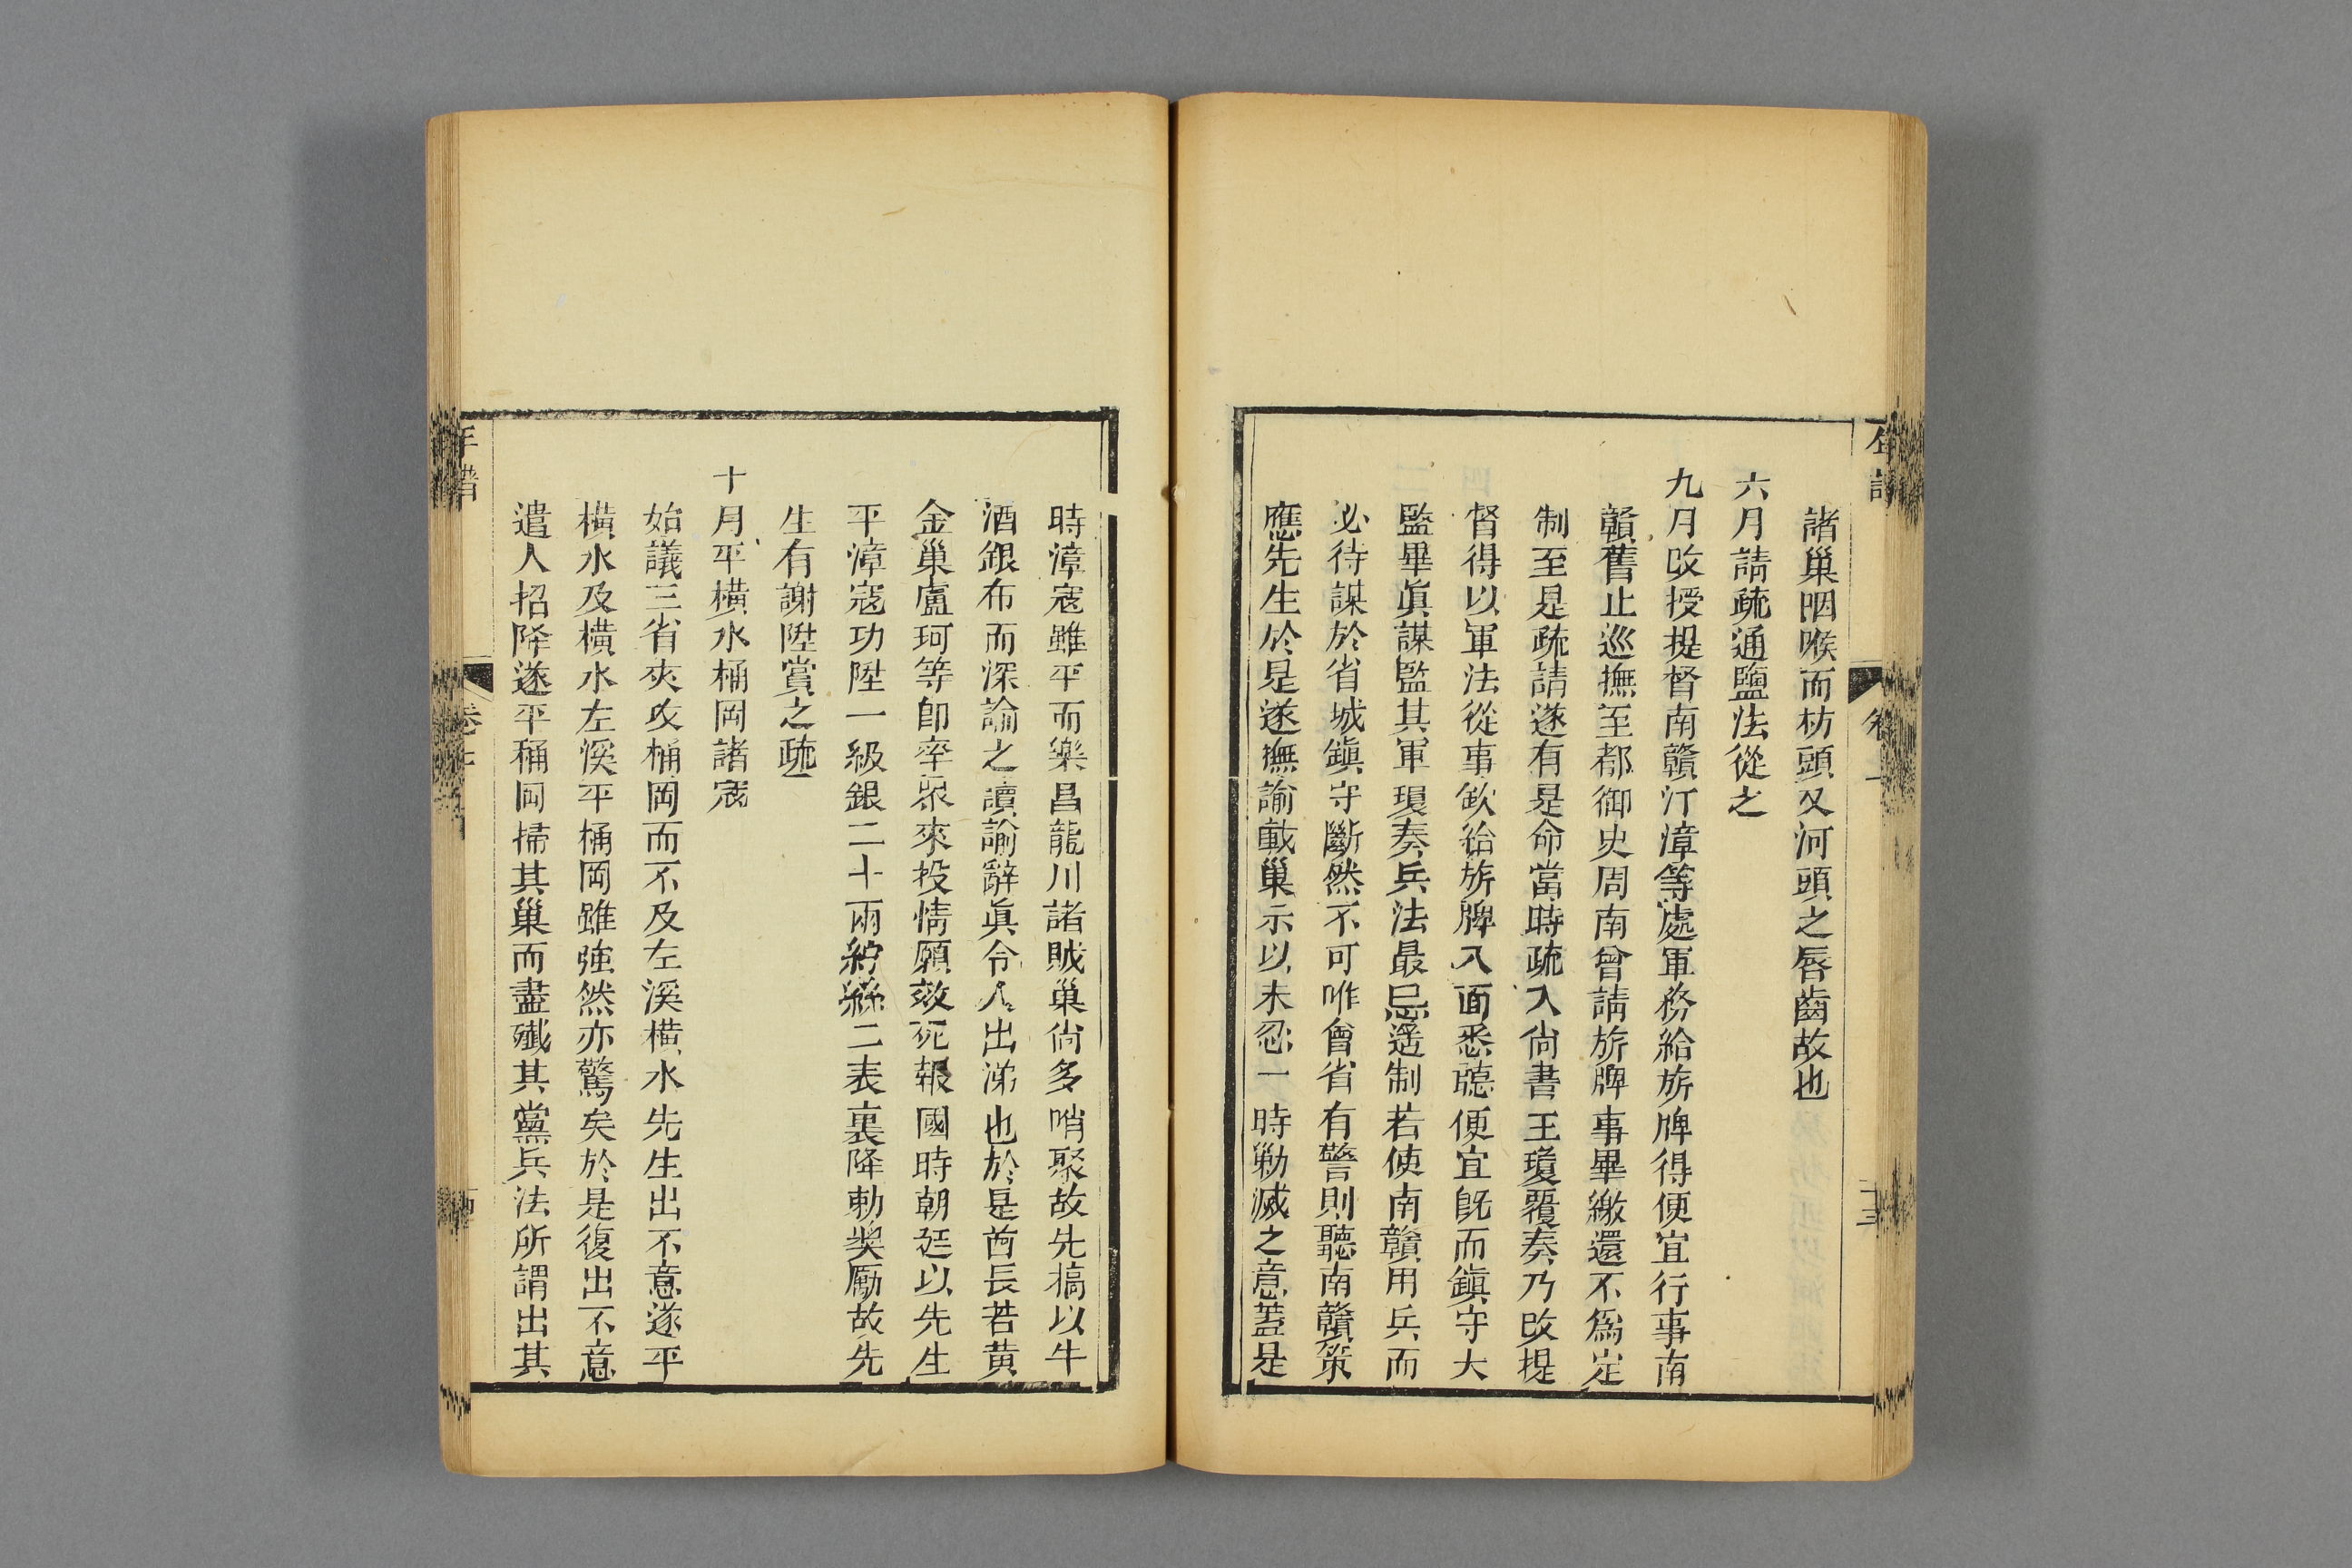 諸巢咽喉而枋頭又河頭之唇齒故也
六月請疏通鹽法從之
九月改授提督南贛汀漳等處軍務給旂牌得便宜行事南
贛舊止巡撫至都御史周南曾請旂牌事畢繳還不爲定
制至是疏請遂有是命當時疏入尙書王瓊覆奏乃改提
督得以軍法從事欽給旂牌八面悉聽便宜旣而鎭守大
監畢眞謀監其軍瓊奏兵法最忌遙制若使南贛用兵而
必待謀於省城鎭守斷然不可唯會省有警則聽南贛策
應先生於是遂撫諭賊巢示以未忍一時勦滅之意蓋是
時漳寇雖平而樂昌龍川諸賊巢尙多哨聚故先犒以牛
酒銀布而深諭之讀諭辭眞令人出涕也於是酋長若黃
金巢盧珂等卽率衆來投情願效死報國時朝廷以先生
平漳寇功陞一級銀二十兩紵絲二表裏降勅奬勵故先
生有謝陞賞之疏
十月平橫水桶岡諸寇
始議三省夾攻桶岡而不及左溪橫水先生出不意遂平
橫水及橫水左溪平桶岡雖強然亦驚矣於是復出不意
遣人招降遂平桶岡掃其巢而盡殲其黨兵法所謂出其